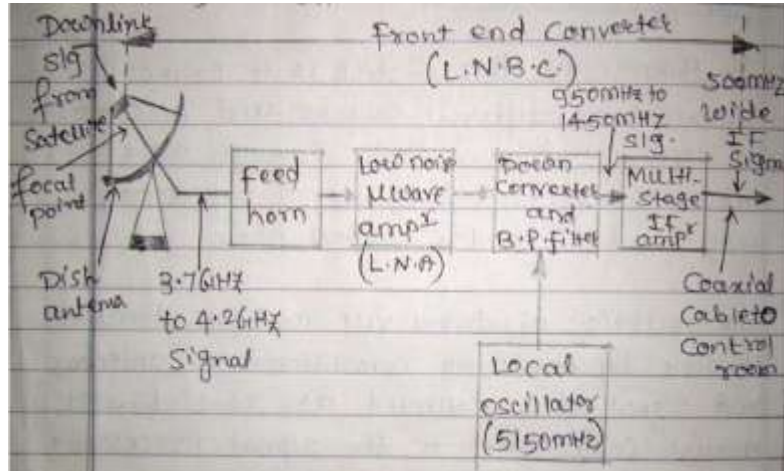 Downlink
sig
from
Satellite
focal
point
Dish
antena
Front end Converter
(L.N.B.C.)
3.7GHz
to 4.2GHz
Signal
feed
horn
Low noise
μwave
ampr
(L.N.A)
Down
Converter
and
B.P.Filter
950mHz to
1450mHz
sig.
Multi-
Stage
IF
ampr
500mHz
wide
IF
Signal
Coaxial
Cable to
Control
room
Local
oscillator
(5150mHz)